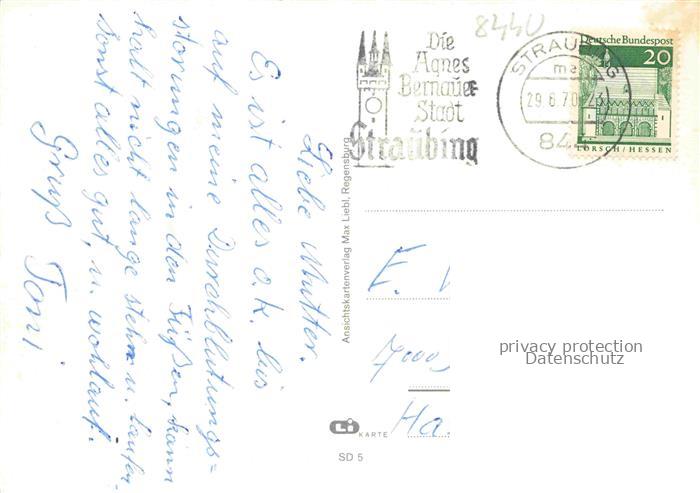 Liebe Mutter.
Es ist alles o.k. bis
auf meine Durchblutungs=
störungen in den Füßen, kann
halt nicht lange stehn u. laufen
sonst alles gut, u. wohlauf.
Gruß Toni
Ansichtskartenverlag Max Liebl, Regensburg
8440
Die
Agnes
Bernauer
Stadt
Straubing
STRAUBING
29.6.70
844
Deutsche Bundespost
20
LORSCH/HESSEN
E.
7000
Ha.
privacy protection
Datenschutz
Li KARTE
SD 5